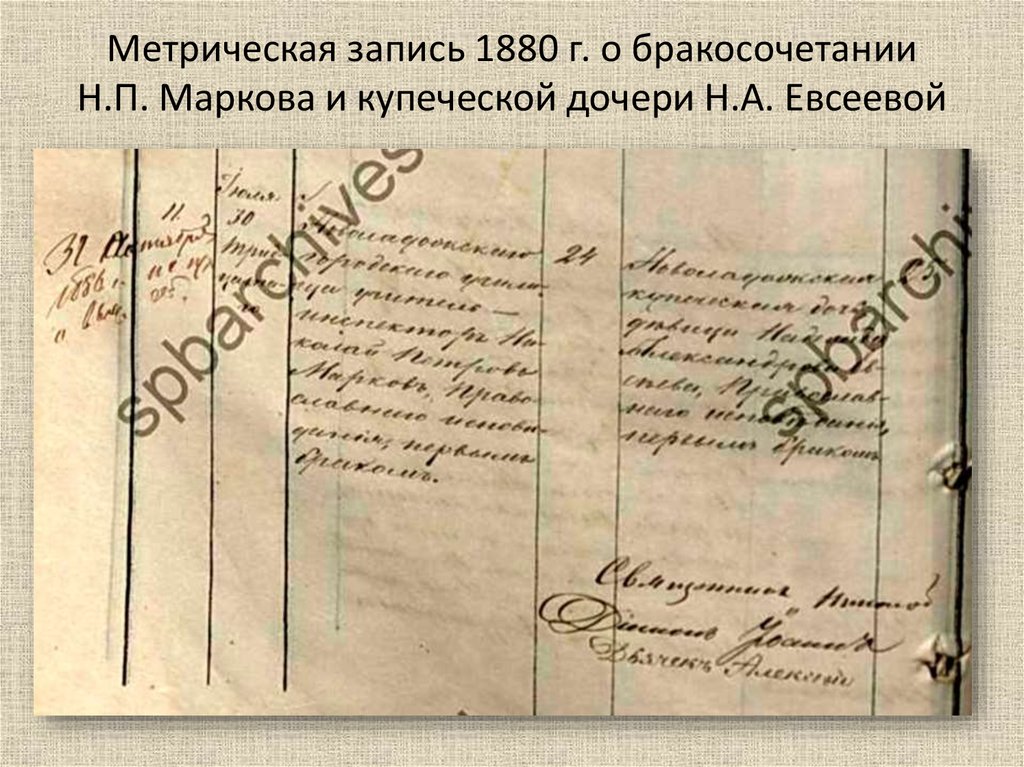 Метрическая запись 1880 г. о бракосочетании
Н.П. Маркова и купеческой дочери Н.А. Евсеевой
31 Октября
1886 г.
11
Июля
30
Трид-
цата-
го
Новоладожскаго
городскаго учили-
ща учитель —
инспекторъ Ни-
колай Петровъ
Марковъ, Право-
славнаго испове-
дания, первымъ
бракомъ.
24
Новоладожская
купеческая дочь
девица Надежда
Александрова Ев-
сеева, Православ-
наго исповедания,
первымъ бракомъ
23
Священникъ Николай
Диаконъ Иоаннъ
Дьячекъ Алексий
spbarchives
spbarchi